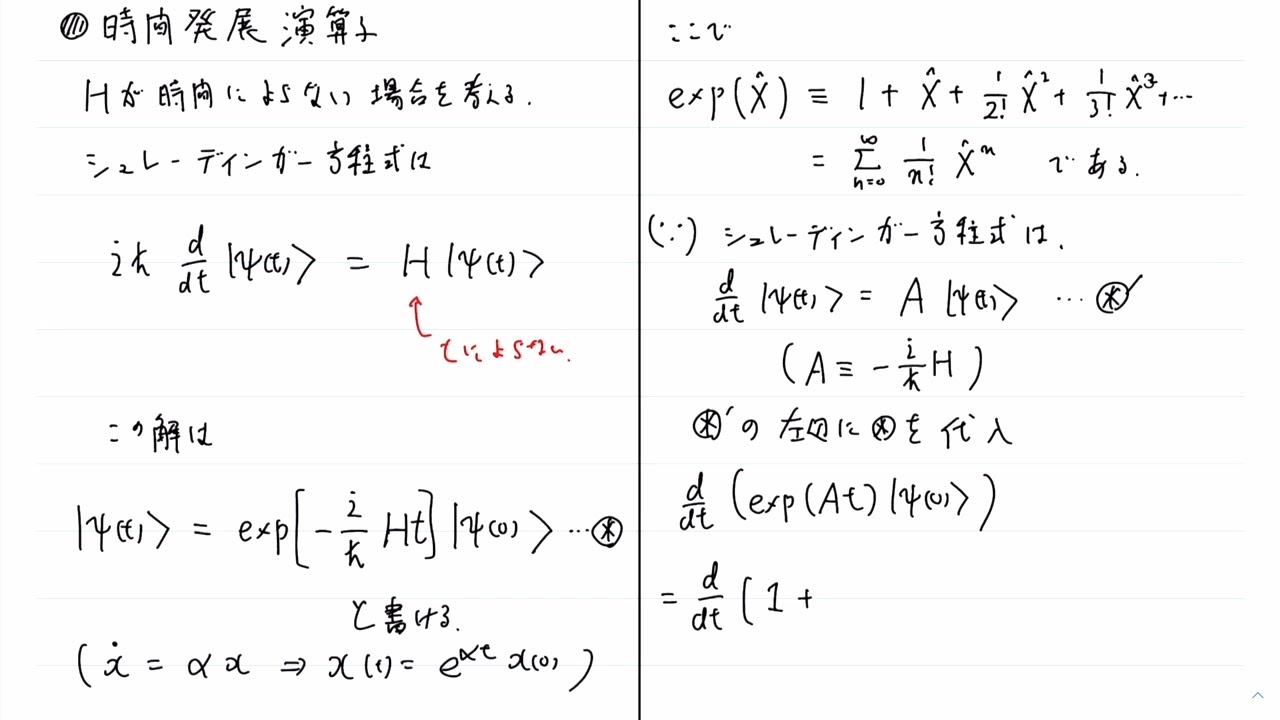 時間発展演算子
Hが時間によらない場合を考える.
シュレーディンガー方程式は
iħ d/dt |ψ(t)⟩ = H |ψ(t)⟩
tによらない.
この解は
|ψ(t)⟩ = exp[-i/ħ Ht] |ψ(0)⟩ …⊛
と書ける.
(ẋ = αx ⇒ x(t) = e^{αt} x(0))
ここで
exp(X̂) ≡ 1 + X̂ + 1/2! X̂² + 1/3! X̂³ + …
= Σ_{n=0}^{∞} 1/n! X̂ⁿ である.
(∵) シュレーディンガー方程式は,
d/dt |ψ(t)⟩ = A |ψ(t)⟩ … ⊛′
(A ≡ -i/ħ H)
⊛′の左辺に⊛を代入
d/dt (exp(At) |ψ(0)⟩)
= d/dt (1 +